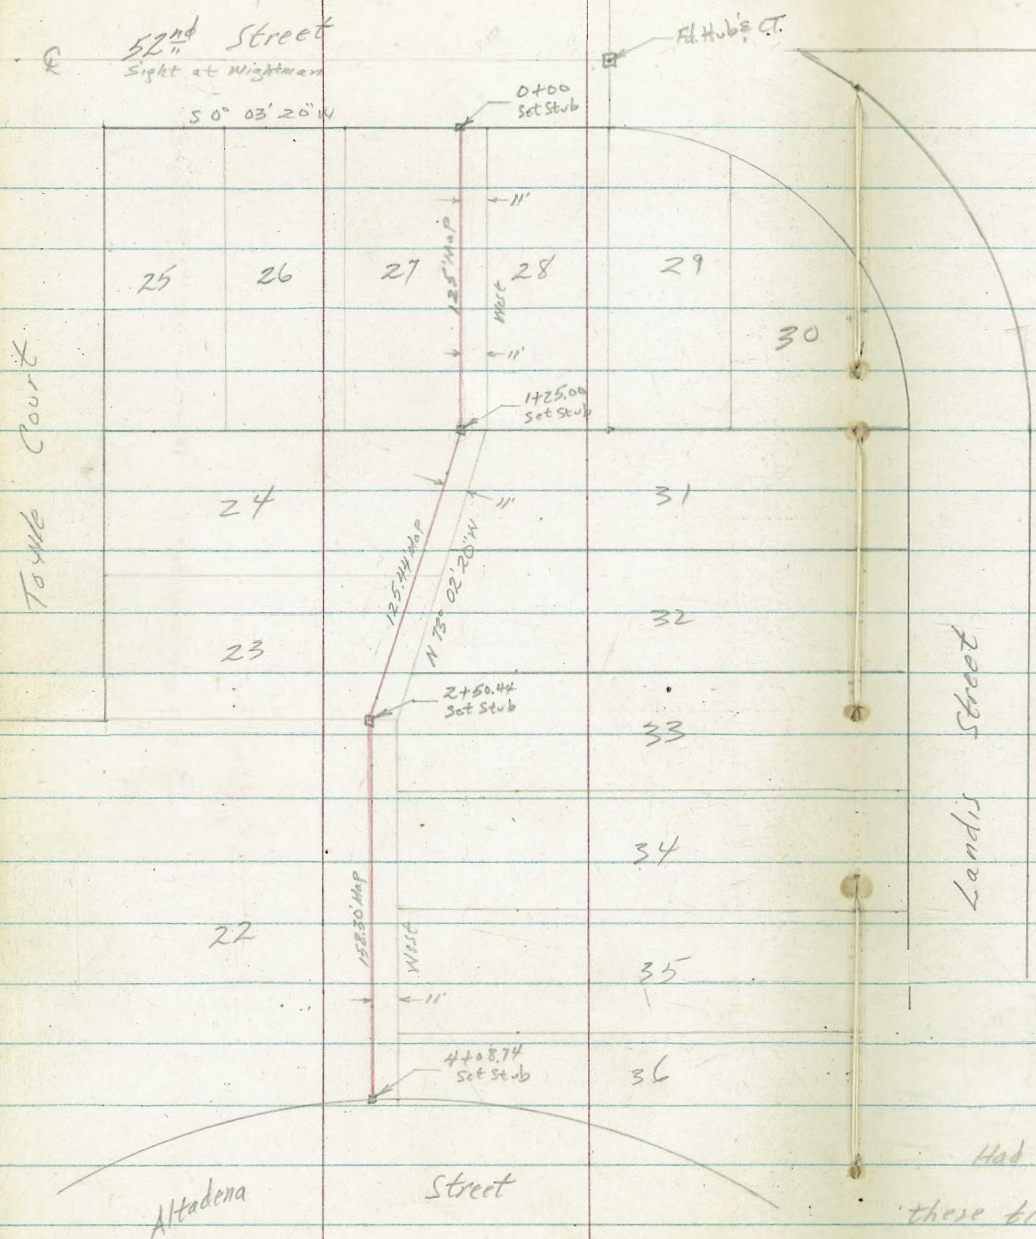 52nd Street
Sight at Wightman
S 0° 03' 20" W
0+00
Set Stub
Fd. Hub & CT.
11'
125' Map
West
25
26
27
28
29
30
11'
1+25.00
Set Stub
Towle Court
24
31
11'
125.44' Map
N 73° 02' 20" W
23
32
2+50.44
Set Stub
33
Landis Street
34
22
158.30' Map
West
35
11'
4+08.74
Set Stub
36
Altadena Street
Had
these